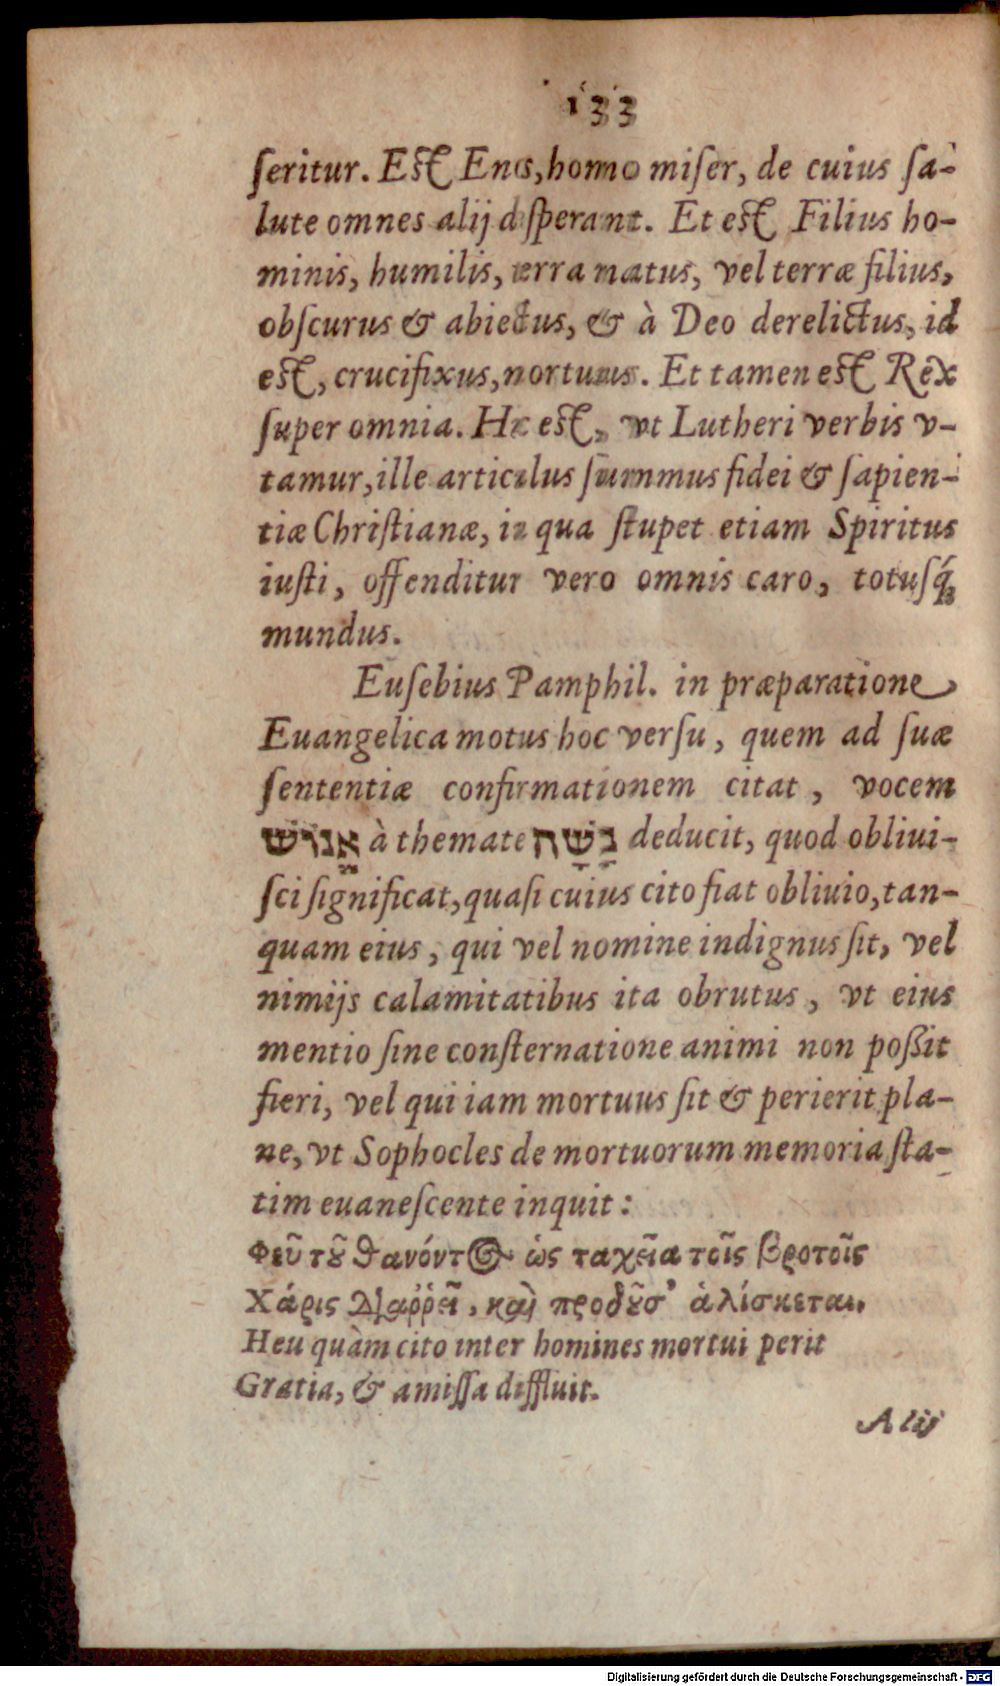 133
ſeritur. Eſt Enos, homo miſer, de cuius ſa-
lute omnes alij deſperant. Et eſt Filius ho-
minis, humilis, terra natus, vel terræ filius,
obſcurus & abiectus, & à Deo derelictus, id
eſt, crucifixus, mortuus. Et tamen eſt Rex
ſuper omnia. Hic eſt, vt Lutheri verbis v-
tamur, ille articulus ſummus fidei & ſapien-
tiæ Chriſtianæ, in qua ſtupet etiam Spiritus
iuſti, offenditur vero omnis caro, totuſq́₃
mundus.
Euſebius Pamphil. in præparatione
Euangelica motus hoc verſu, quem ad ſuæ
ſententiæ confirmationem citat, vocem
אֱנוֹשׁ à themate נָשָׁה deducit, quod obliui-
ſci ſignificat, quaſi cuius cito fiat obliuio, tan-
quam eius, qui vel nomine indignus ſit, vel
nimijs calamitatibus ita obrutus, vt eius
mentio ſine conſternatione animi non poßit
fieri, vel qui iam mortuus ſit & perierit pla-
ne, vt Sophocles de mortuorum memoria ſta-
tim euaneſcente inquit:
Φεῦ τȣ͂ θανόντος ὡς ταχεῖα τοῖς βροτοῖς
Χάρις διαῤῥεῖ, καὶ προδȣ͂σ' ἁλίσκεται.
Heu quàm cito inter homines mortui perit
Gratia, & amiſſa diffluit.
Alij
Digitalisierung gefördert durch die Deutsche Forschungsgemeinschaft - DFG